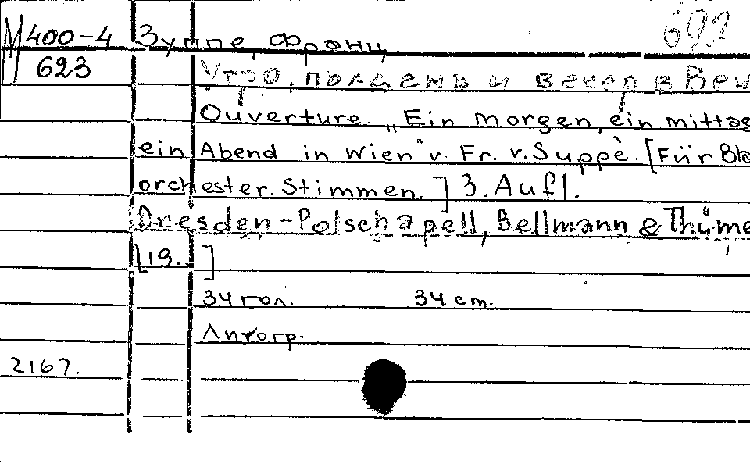 М400-4 Зуппе, Франц
623 Утро, полдень и вечер в Вен
Ouverture „Ein Morgen, ein mittag
ein Abend in Wien" v. Fr. v. Suppè. [Für Bla
orchester. Stimmen.] 3. Aufl.
Dresden-Potschapell, Bellmann & Thüme
[19. ]
34 гол. 34 cm.
Литогр.
2167.